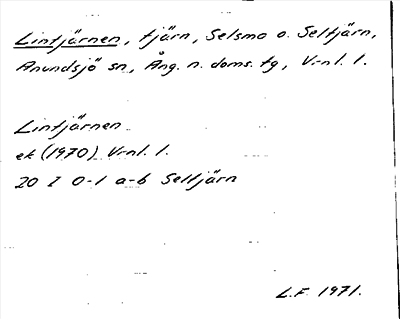 Lintjärnen, tjärn, Selsmo o. Seltjärn,
Anundsjö sn, Ång. n. doms. tg, V-nl. l.
Lintjärnen
ek (1970) V-nl. l.
20 I 0-1 a-b Seltjärn
L.F. 1971.